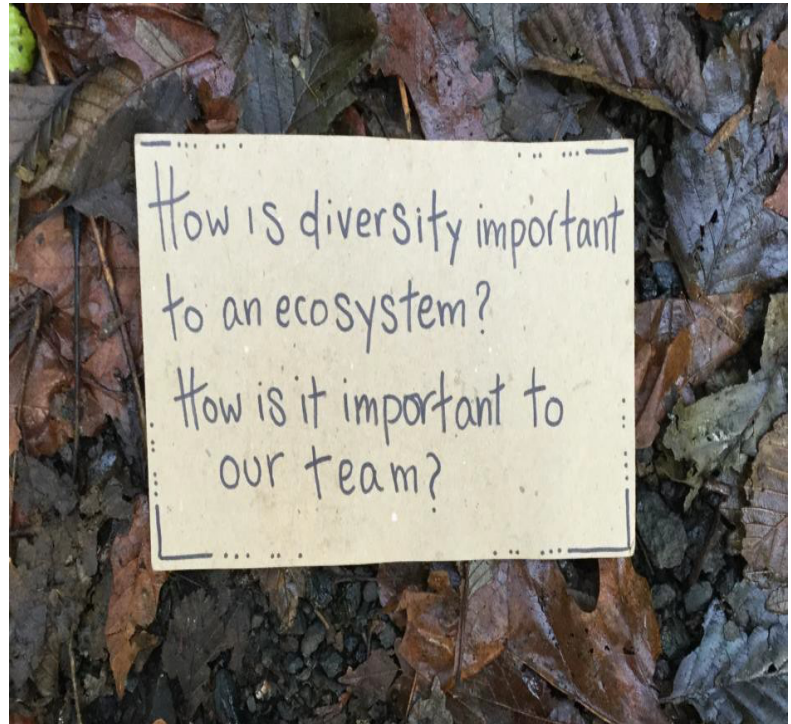 How is diversity important
to an ecosystem?
How is it important to
our team?